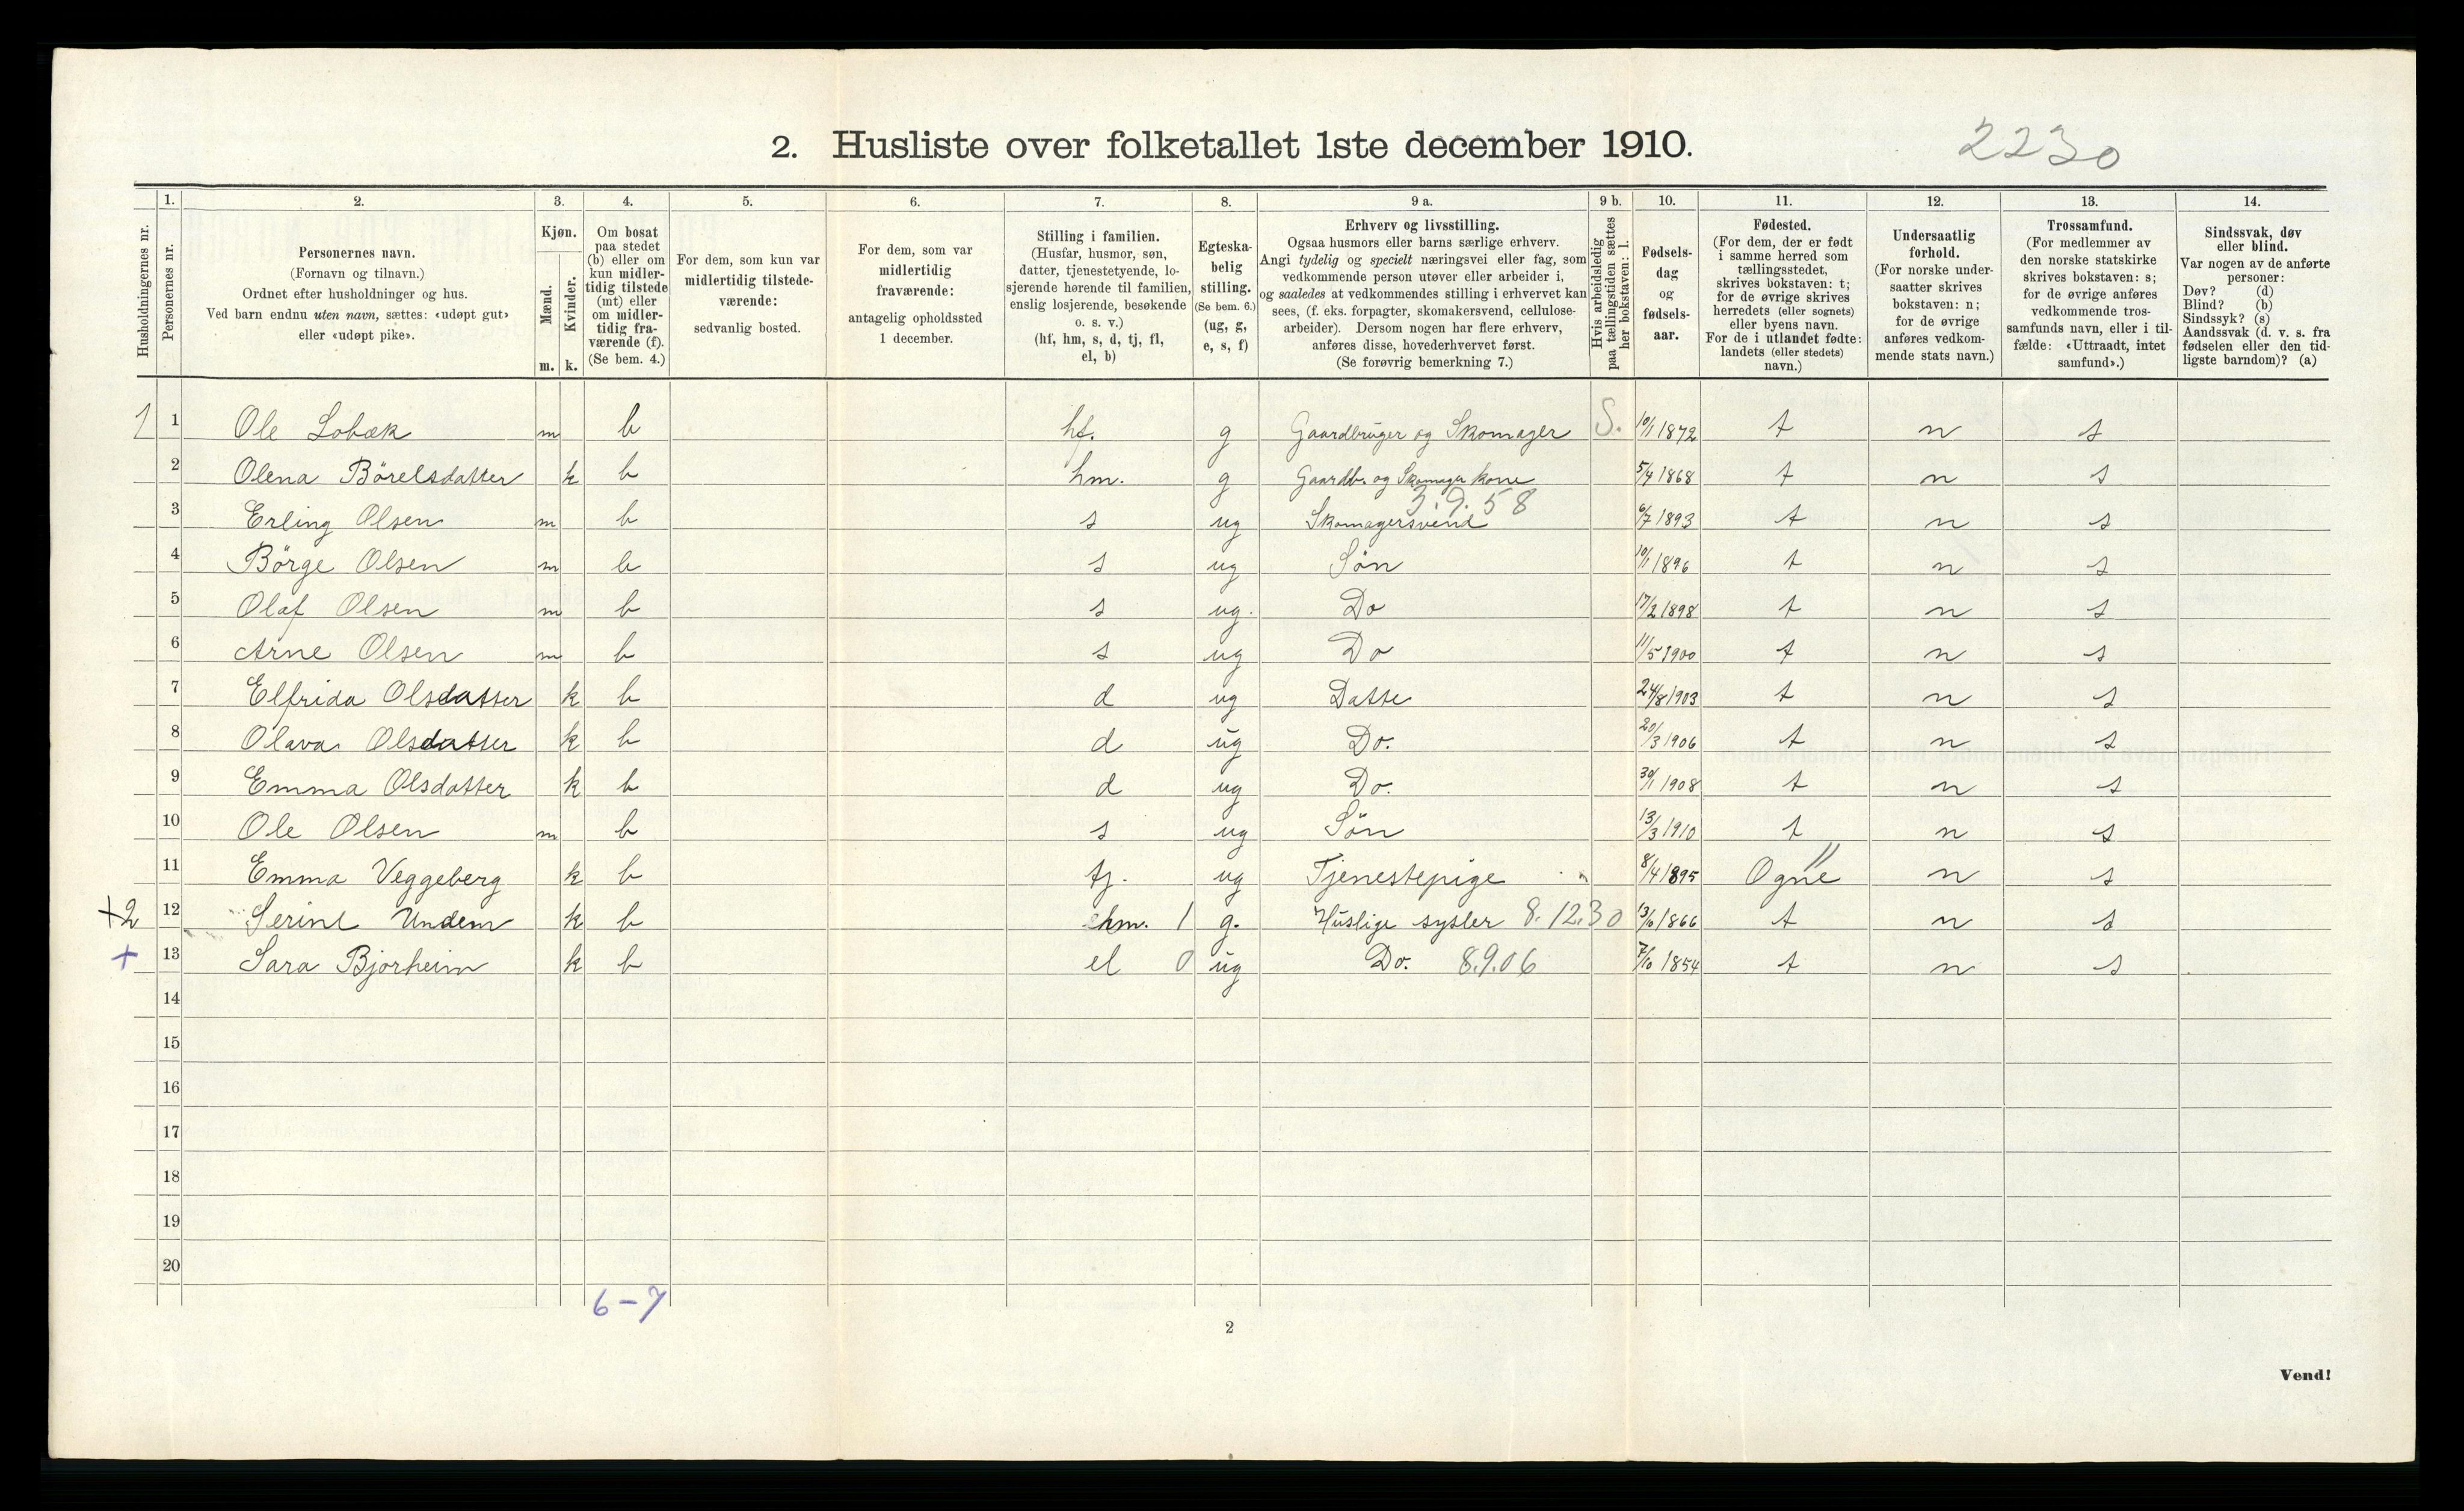 2. Husliste over folketallet 1ste december 1910. 2230
Husholdningernes nr.
1. Personernes nr.
2. Personernes navn.
(Fornavn og tilnavn.)
Ordnet efter husholdninger og hus.
Ved barn endnu uten navn, sættes: «udøpt gut»
eller «udøpt pike».
3. Kjøn.
Mænd. m.
Kvinder. k.
4. Om bosat
paa stedet
(b) eller om
kun midler-
tidig tilstede
(mt) eller
om midler-
tidig fra-
værende (f).
(Se bem. 4.)
5. For dem, som kun var
midlertidig tilstede-
værende:
sedvanlig bosted.
6. For dem, som var
midlertidig
fraværende:
antagelig opholdssted
1 december.
7. Stilling i familien.
(Husfar, husmor, søn,
datter, tjenestetyende, lo-
sjerende hørende til familien,
enslig losjerende, besøkende
o. s. v.)
(hf, hm, s, d, tj, fl,
el, b)
8. Egteska-
belig
stilling.
(Se bem. 6.)
(ug, g,
e, s, f)
9 a. Erhverv og livsstilling.
Ogsaa husmors eller barns særlige erhverv.
Angi tydelig og specielt næringsvei eller fag, som
vedkommende person utøver eller arbeider i,
og saaledes at vedkommendes stilling i erhvervet kan
sees, (f. eks. forpagter, skomakersvend, cellulose-
arbeider). Dersom nogen har flere erhverv,
anføres disse, hovederhvervet først.
(Se forøvrig bemerkning 7.)
9 b. Hvis arbeidsledig
paa tællingstiden sættes
her bokstaven: l.
10. Fødsels-
dag
og
fødsels-
aar.
11. Fødested.
(For dem, der er født
i samme herred som
tællingsstedet,
skrives bokstaven: t;
for de øvrige skrives
herredets (eller sognets)
eller byens navn.
For de i utlandet fødte:
landets (eller stedets)
navn.)
12. Undersaatlig
forhold.
(For norske under-
saatter skrives
bokstaven: n;
for de øvrige
anføres vedkom-
mende stats navn.)
13. Trossamfund.
(For medlemmer av
den norske statskirke
skrives bokstaven: s;
for de øvrige anføres
vedkommende tros-
samfunds navn, eller i til-
fælde: «Uttraadt, intet
samfund».)
14. Sindssvak, døv
eller blind.
Var nogen av de anførte
personer:
Døv? (d)
Blind? (b)
Sindssyk? (s)
Aandssvak (d. v. s. fra
fødselen eller den tid-
ligste barndom)? (a)
1 1 Ole Lobæk m b hf. g Gaardbruger og Skomager S. 10/1 1872 t n s
2 Olena Börelsdatter k b hm. g Gaardb. og Skomager kone 5/4 1868 t n s
3.9.58
3 Erling Olsen m b s ug Skomagersvend 6/7 1893 t n s
4 Börge Olsen m b s ug Sön 10/1 1896 t n s
5 Olaf Olsen m b s ug. Do 17/2 1898 t n s
6 Arne Olsen m b s ug Do 11/5 1900 t n s
7 Elfrida Olsdatter k b d ug Datte 24/8 1903 t n s
8 Olava Olsdatter k b d ug Do. 20/3 1906 t n s
9 Emma Olsdatter k b d ug Do. 30/1 1908 t n s
10 Ole Olsen m b s ug Sön 13/3 1910 t n s
11 Emma Veggeberg k b tj. ug Tjenestepige 8/4 1895 Ogne n s
+2 12 Serine Undem k b hm. 1 g. Huslige sysler 8.12.30 13/6 1866 t n s
+ 13 Sara Bjorheim k b el 0 ug Do. 8.9.06 7/10 1854 t n s
14
15
16
17
18
19
20
6-7
2
Vend!